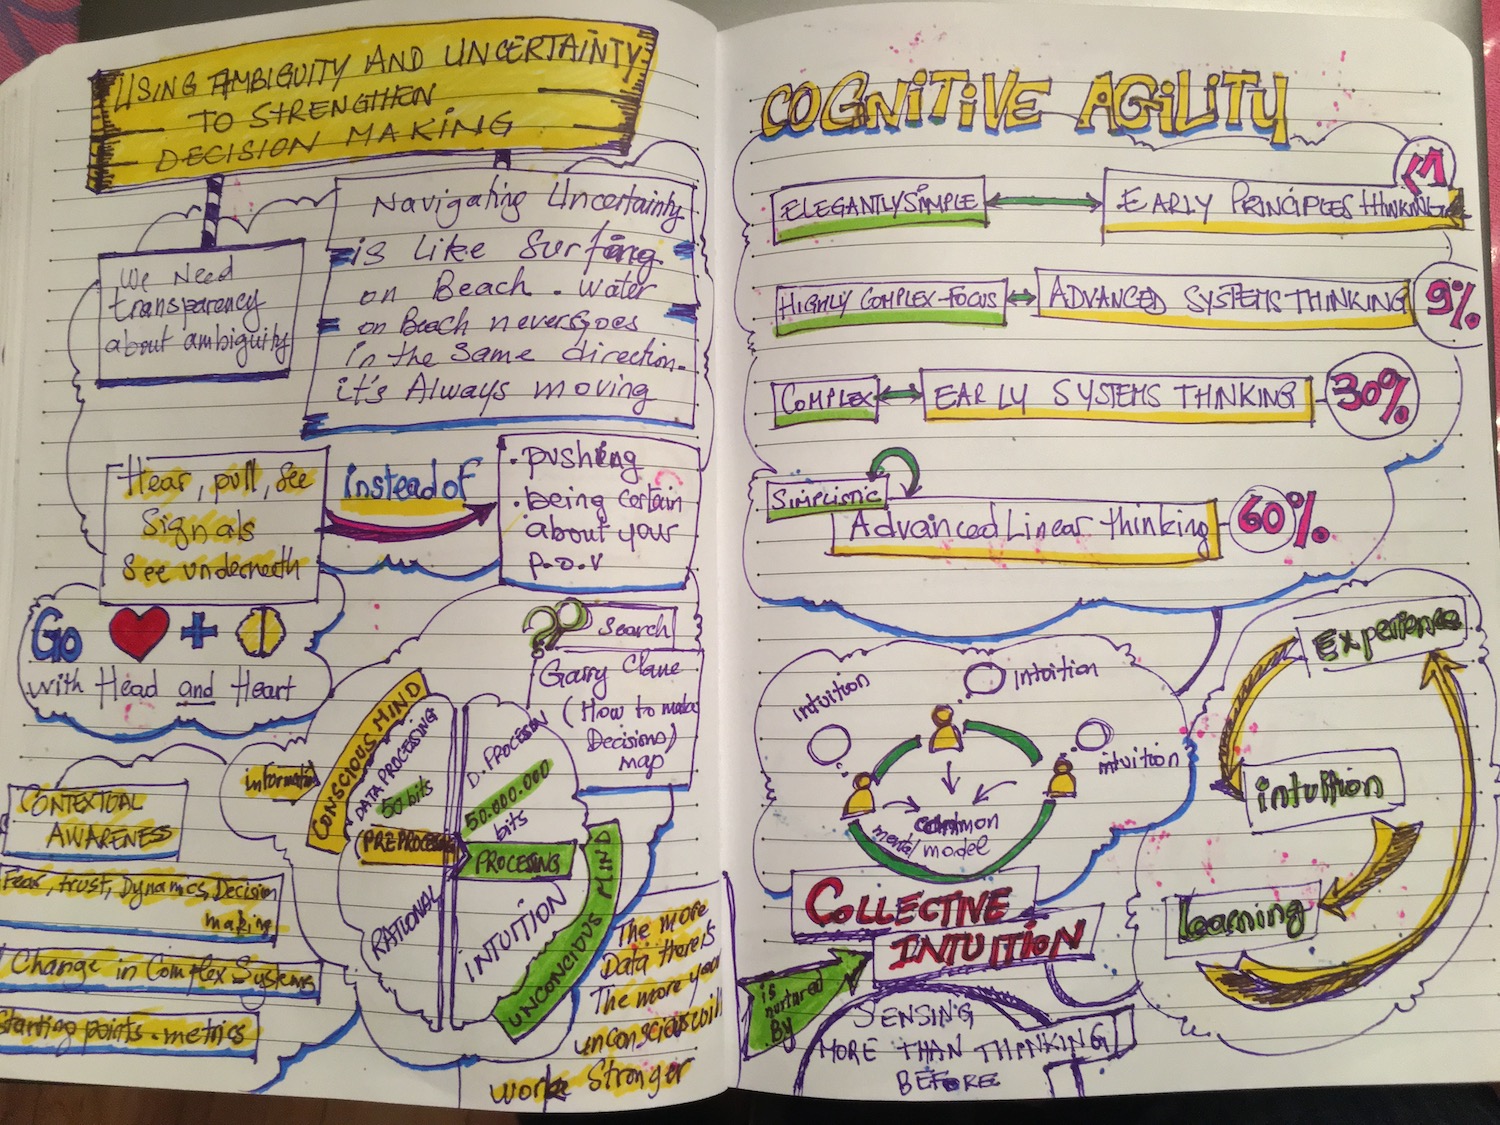 USING AMBIGUITY AND UNCERTAINTY
TO STRENGTHEN
DECISION MAKING
We Need
transparency
about ambiguity
Navigating Uncertainty
is Like Surfing
on Beach. water
on Beach never Goes
in the same direction.
it's Always moving
Hear, pull, See
Signals
See underneath
instead of
. pushing
. being certain
about your
p.o.v
Go +
with Head and Heart
Search
Garry Clane
(How to make
Decisions)
map
information
CONSCIOUS MIND
DATA PROCESSING
50 bits
(PREPROCESING
RATIONAL
D. PROCESSION
50.000.000
bits
PROCESING
INTUITION
UNCONCIOUS MIND
CONTEXTUAL
AWARENESS
Fear, trust, Dynamics, Decision
making
Change in Complex Systems
Starting points - metrics
The more
Data there is
The more your
unconscious will
work Stronger
COGNITIVE AGILITY
ELEGANTLY SIMPLE
EARLY PRINCIPLES THINKING
HIGHLY COMPLEX-FOCUS
ADVANCED SYSTEMS THINKING
9%
COMPLEX
EARLY SYSTEMS THINKING
30%
SIMPLISTIC
Advanced Linear thinking
60%
intuition
intuition
intuition
common
mental model
COLLECTIVE
INTUITION
is
nurtured
By
SENSING
MORE THAN THINKING
BEFORE
Experience
intuition
learning